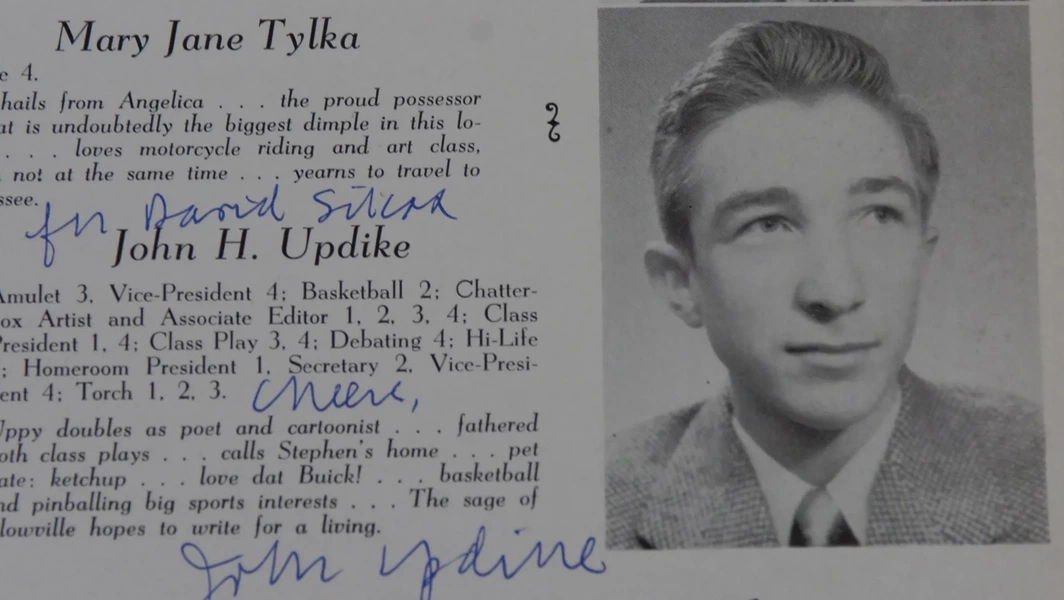 Mary Jane Tylka
e 4.
hails from Angelica . . . the proud possessor
at is undoubtedly the biggest dimple in this lo-
. . . loves motorcycle riding and art class,
not at the same time . . . yearns to travel to
ssee.
for David Silcox
John H. Updike
Amulet 3, Vice-President 4; Basketball 2; Chatter-
ox Artist and Associate Editor 1, 2, 3, 4; Class
President 1, 4; Class Play 3, 4; Debating 4; Hi-Life
; Homeroom President 1, Secretary 2, Vice-Presi-
ent 4; Torch 1, 2, 3.
Cheers,
Uppy doubles as poet and cartoonist . . . fathered
oth class plays . . . calls Stephen's home . . . pet
ate: ketchup . . . love dat Buick! . . . basketball
nd pinballing big sports interests . . . The sage of
lowville hopes to write for a living.
John Updike